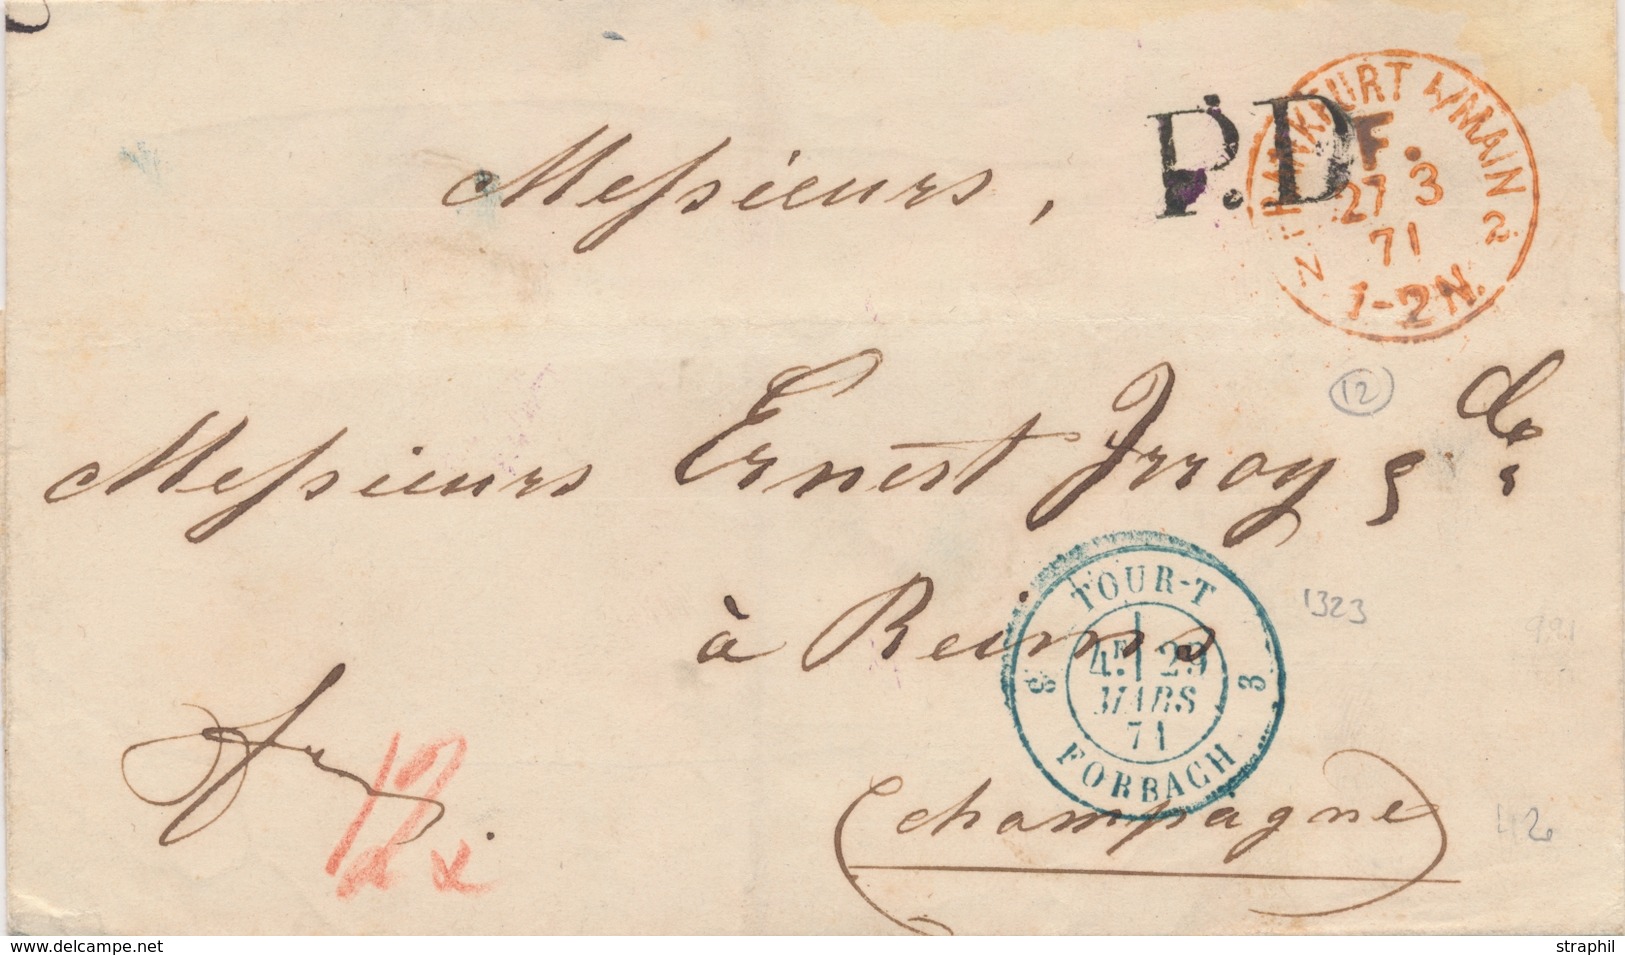 P.D
FRANKFURT A/MAIN 2
F.
27 3
71
1-2 N.
Messieurs,
12
Messieurs Ernest Irroy & Cie
à Reims
TOUR-T
4E 29
MARS
71
3 3
FORBACH
1323
fr
(champagne)
42
www.delcampe.net
straphil